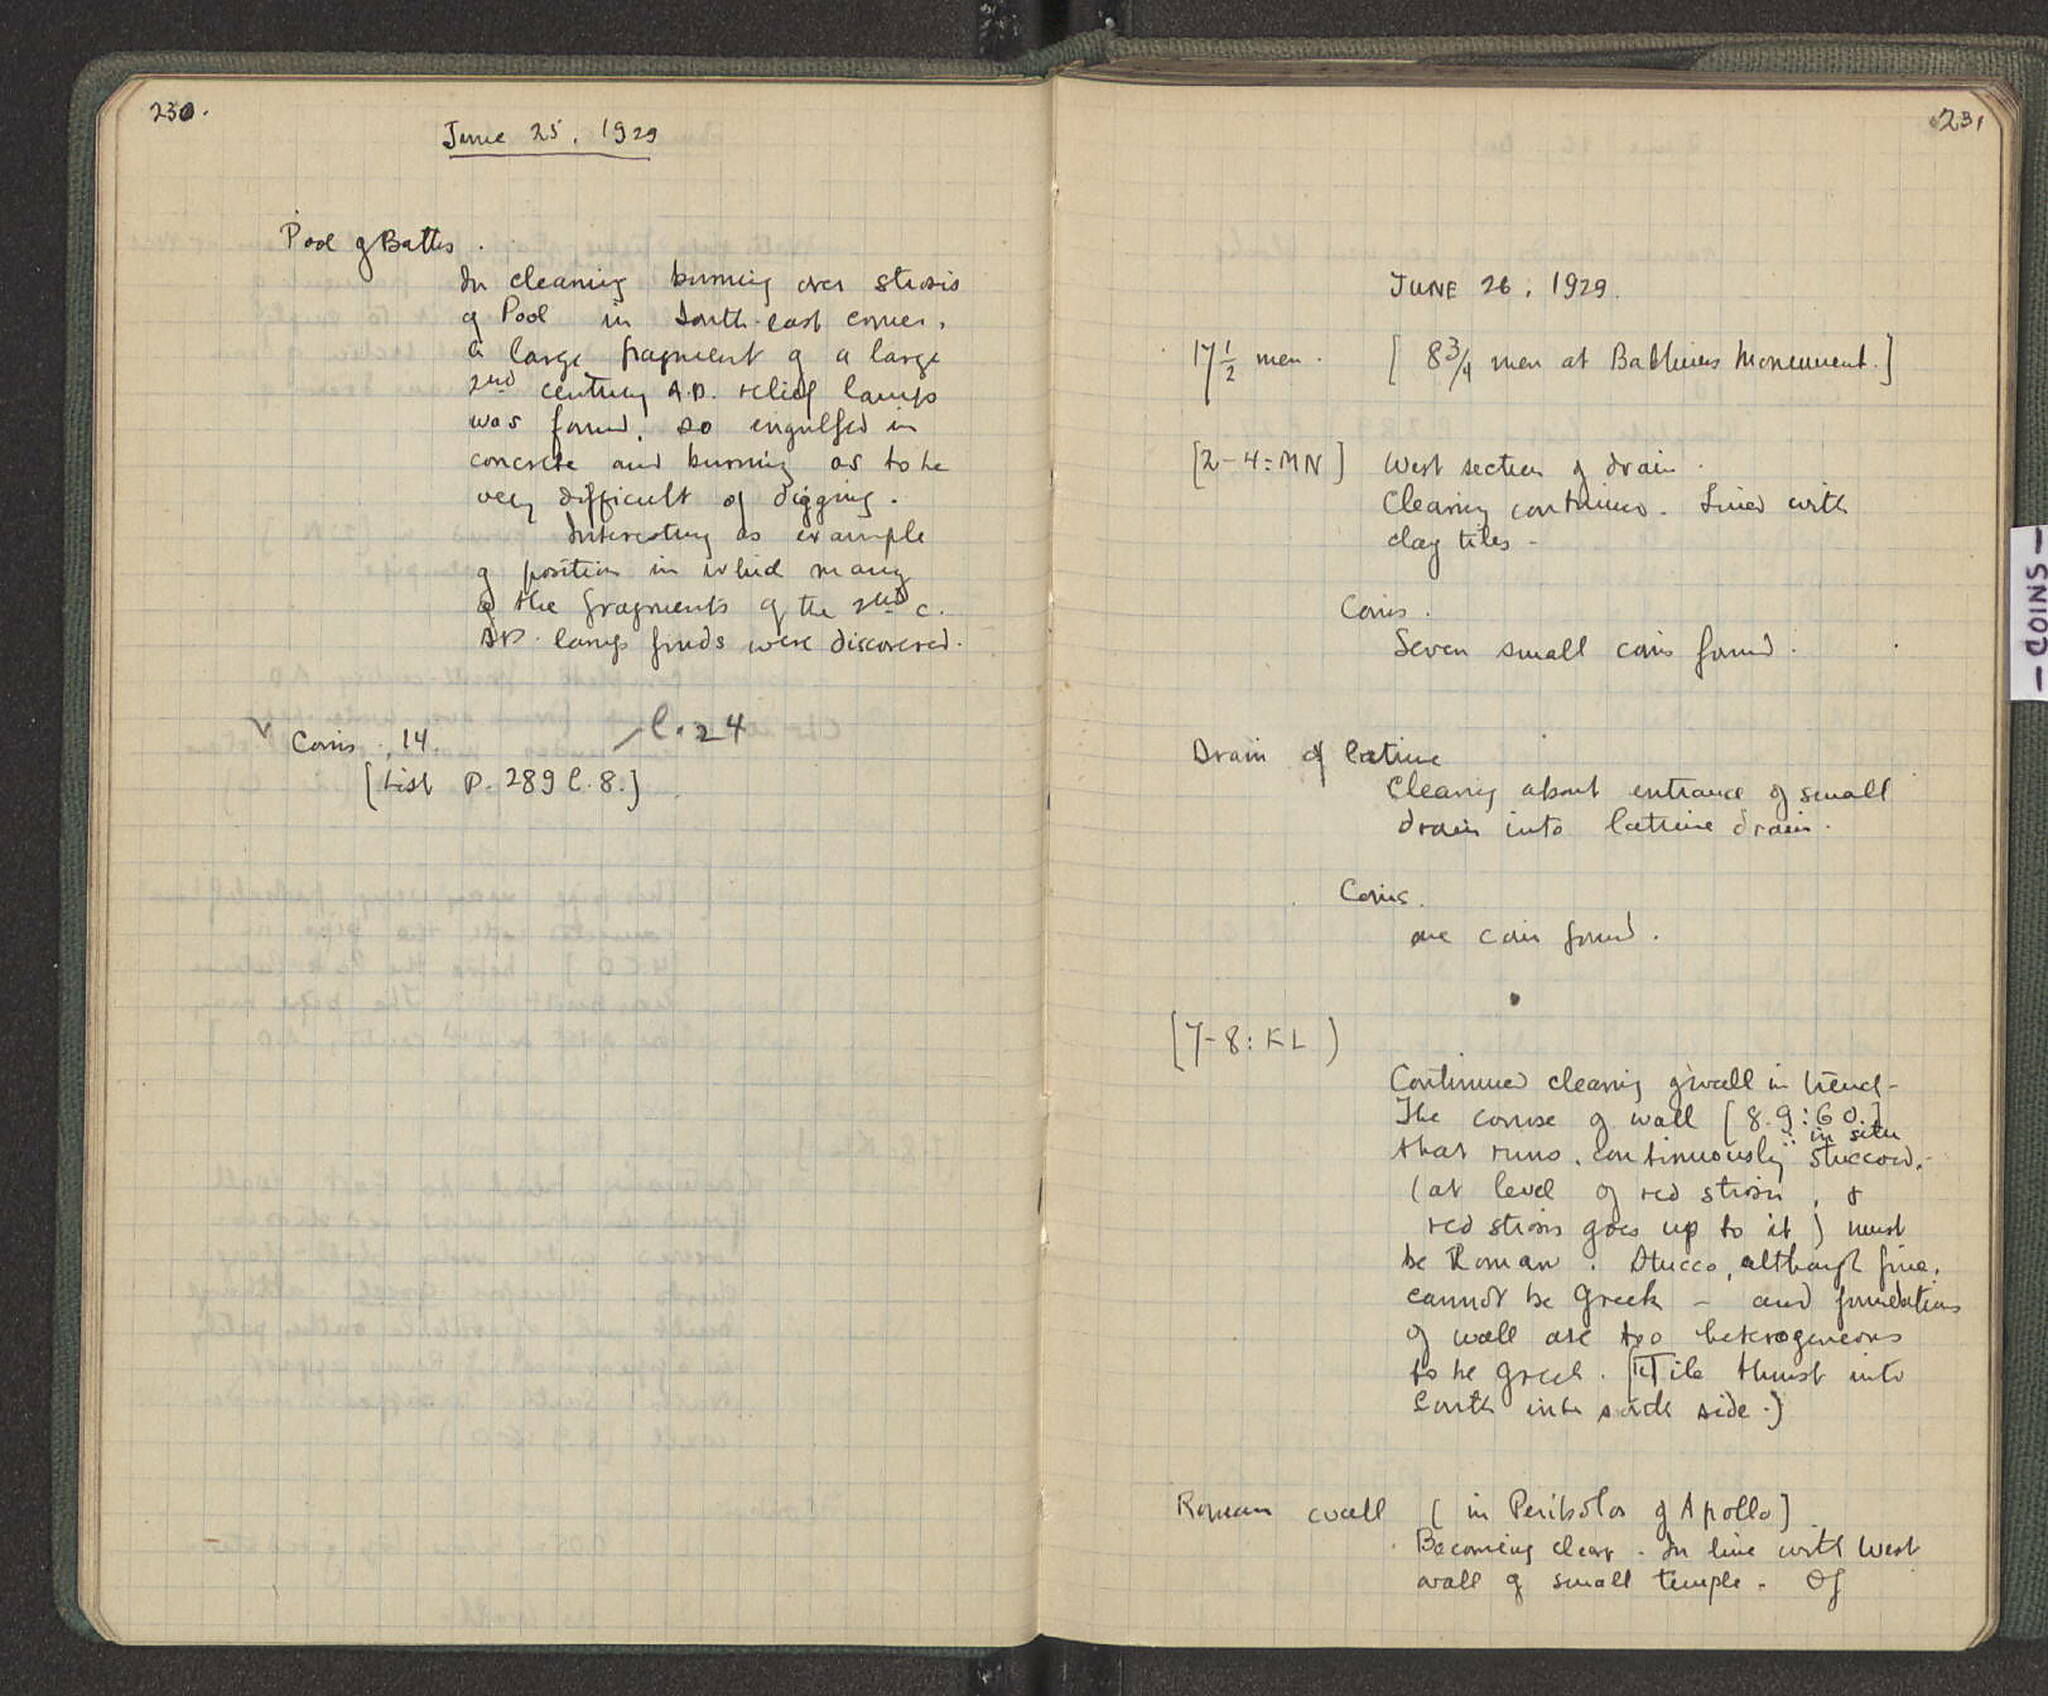 230.
June 25, 1929
Pool of Baths.
In cleaning burning over strosis
of Pool in South-east corner,
a large fragment of a large
2nd century A.D. relief lamp
was found, so engulfed in
concrete and burning as to be
very difficult of digging.
Interesting as example
of position in which many
of the fragments of the 2nd c.
AD. lamp finds were discovered.
C. 24
Coins, 14.
[List P. 289 C. 8.]
231
JUNE 26, 1929.
17 1/2 men. [ 8 3/4 men at Babbius Monument.]
[2-4: MN] West section of drain.
Cleaning continues. Lined with
clay tiles -
Coins.
Seven small coins found.
Drain of latrine
Cleaning about entrance of small
drain into latrine drain.
Coins.
one coin found.
[7-8: KL)
Continued cleaning of wall in trench -
The course of wall [8.9: 60.]
in situ
that runs continuously stuccoed.
(at level of red strosis, &
red strosis goes up to it) must
be Roman. Stucco, although fine,
cannot be Greek - and foundations
of wall are too heterogeneous
to be Greek. [Tile thrust into
Earth side.)
Roman wall ( in Peribolos of Apollo]
Becoming clear. In line with West
wall of small temple. Of
- COINS -